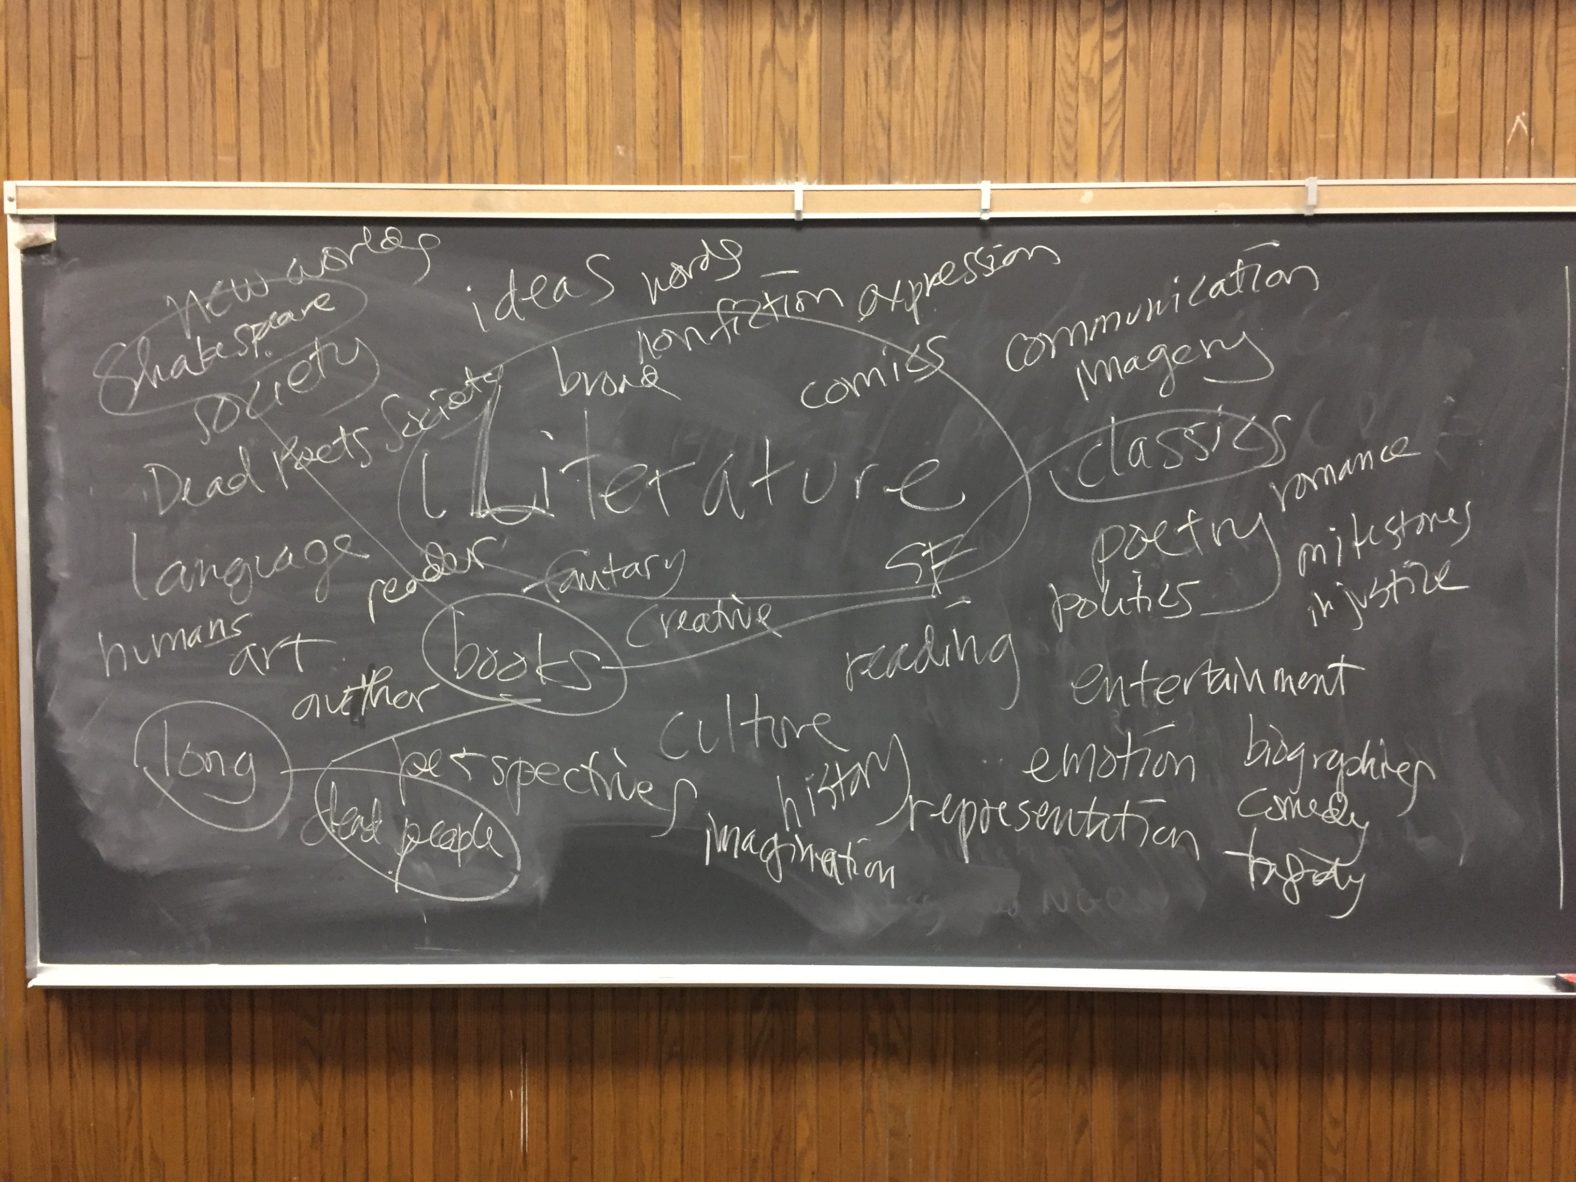 new worlds
ideas
words
nonfiction
expression
communication
Shakespeare
society
broad
comics
imagery
Dead Poets Society
Literature
classics
romance
language
reader
fantasy
SF
poetry
milestones
humans
art
books
creative
reading
politics
injustice
author
culture
entertainment
long
perspectives
history
emotion
biographies
dead people
imagination
representation
comedy
tragedy